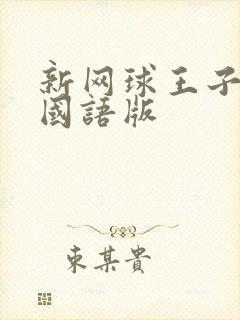 新网球王子
國語版
東某貴